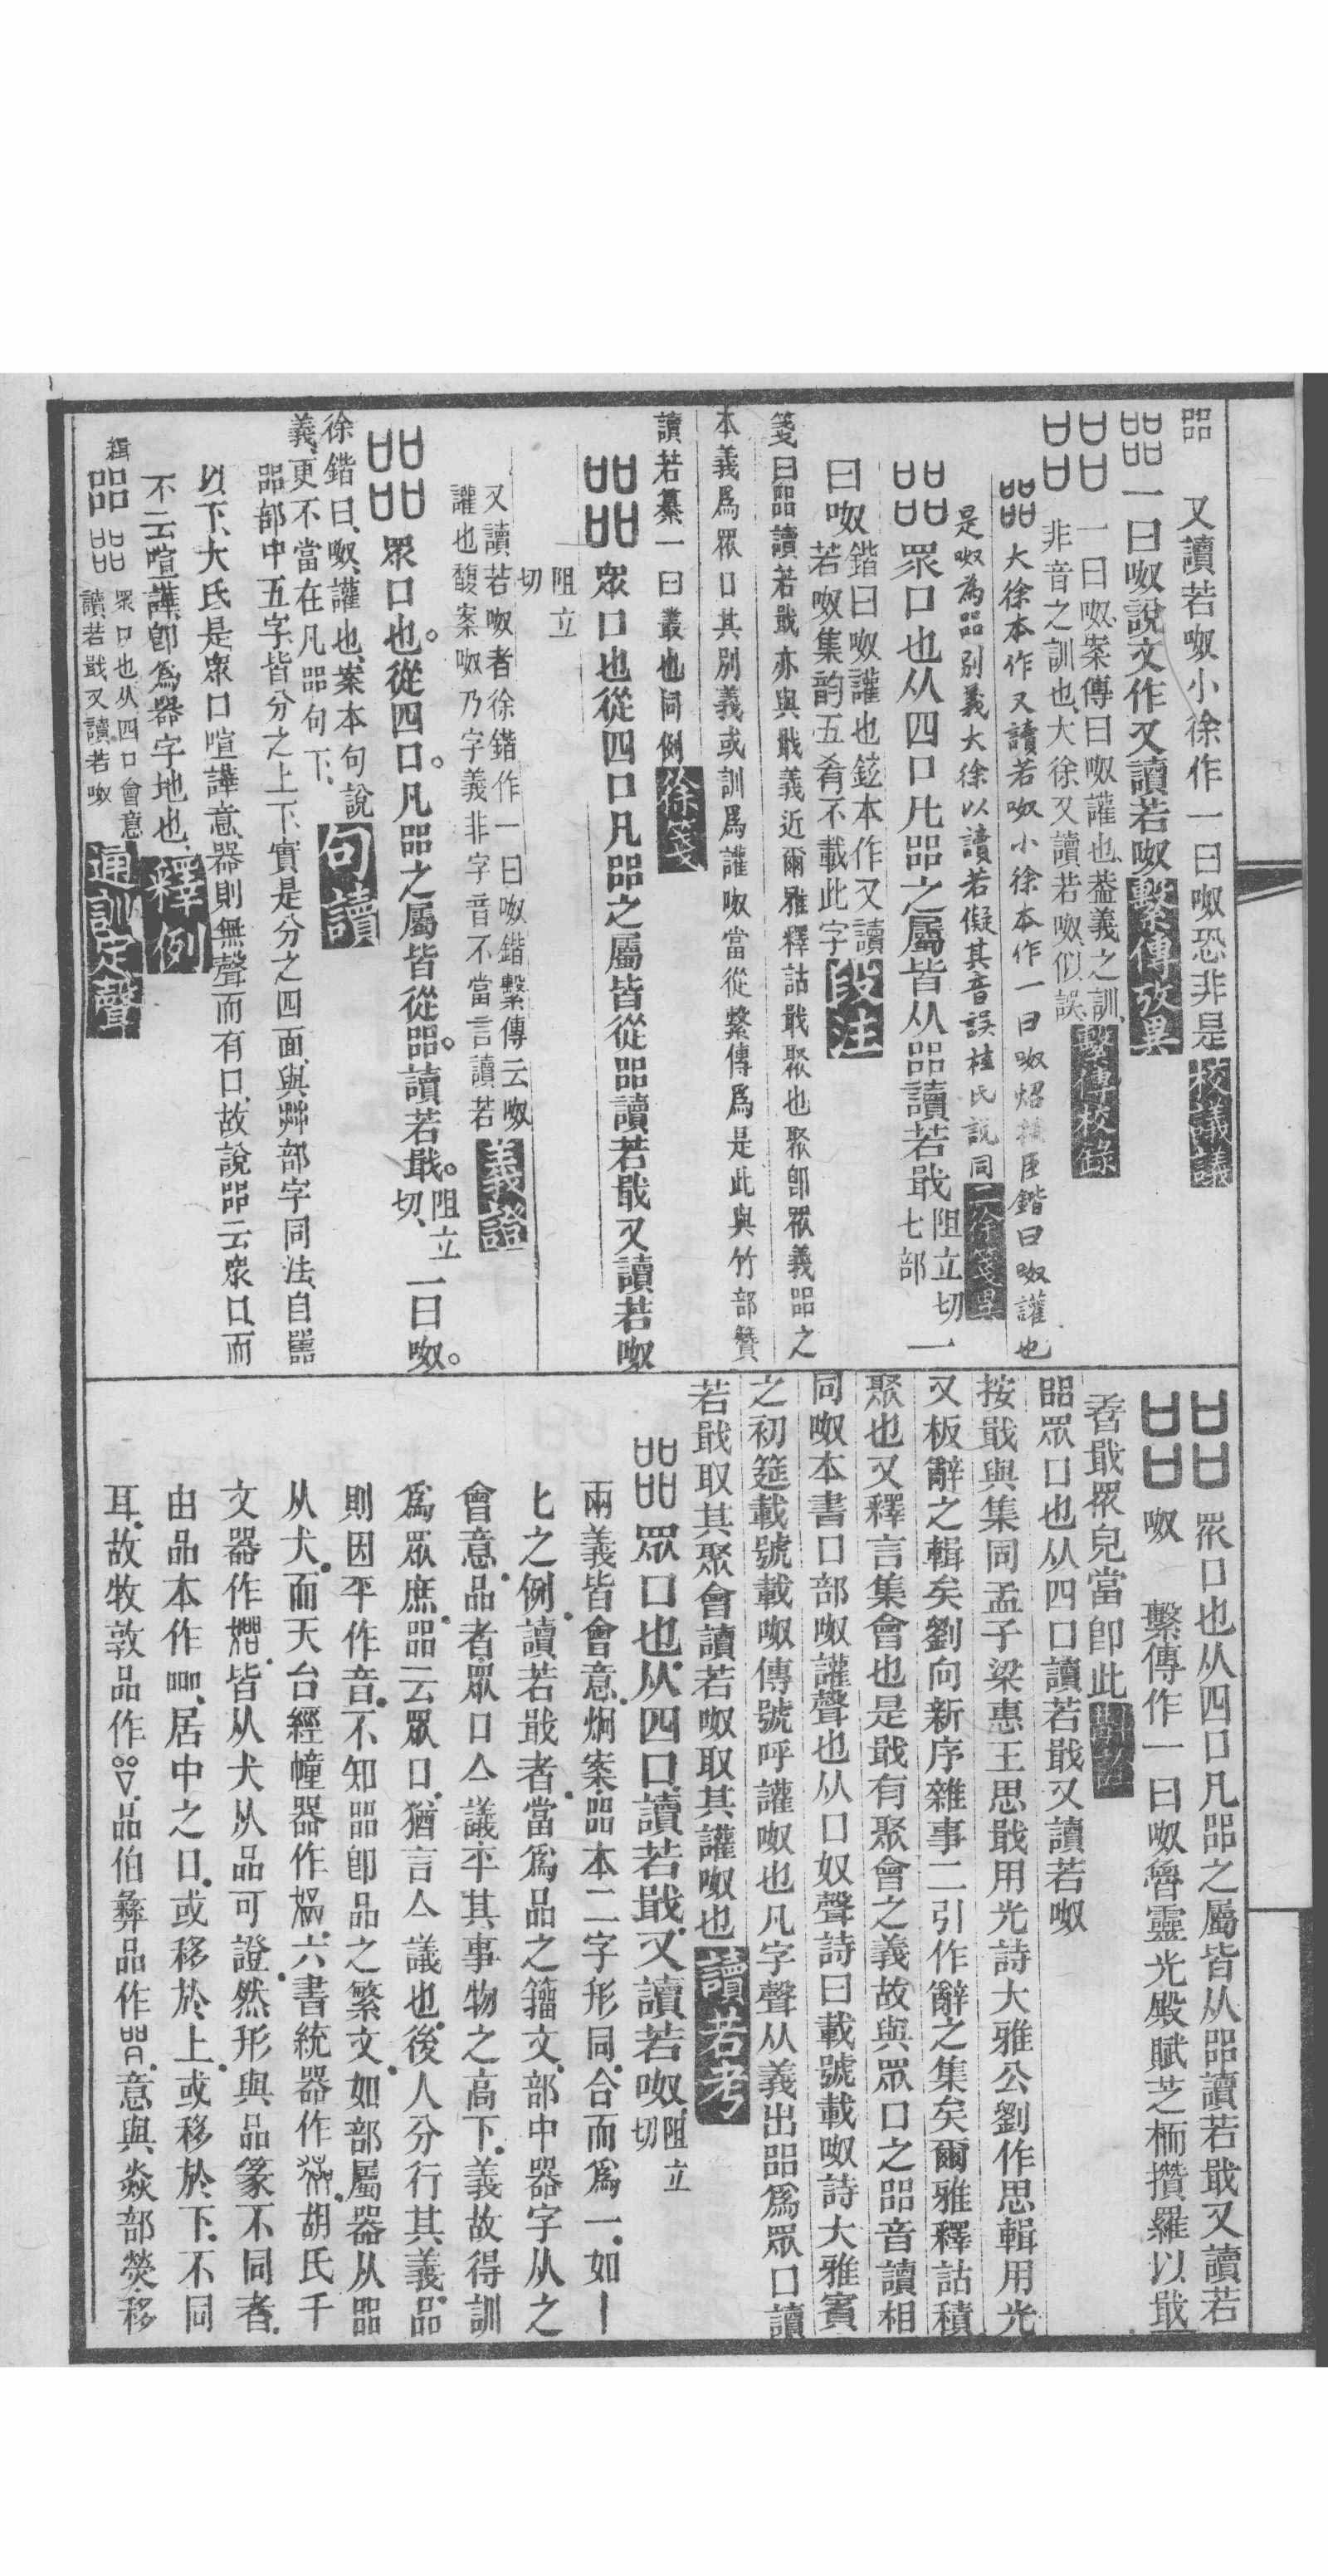 㗊 又讀若呶小徐作一曰呶恐非是 校議議
㗊 一曰呶說文作又讀若呶 繫傳攷異
㗊 一曰呶案傳曰呶讙也蓋義之訓
非音之訓也大徐又讀若呶似誤 繫傳校錄
㗊 大徐本作又讀若呶小徐本作一曰呶 臣鍇曰呶讙也
是呶為㗊別義大徐以讀若儗其音誤桂氏說同 二徐箋異
㗊 眾口也从四口凡㗊之屬皆从㗊讀若戢 阻立切 七部 一
曰呶 鍇曰呶讙也鉉本作又讀
若呶集韵五肴不載此字 段注
箋曰㗊讀若戢亦與戢義近爾雅釋詁戢聚也聚卽眾義㗊之
本義爲眾口其別義或訓爲讙呶當從繫傳爲是此與竹部籫
讀若纂一曰叢也同例 徐箋
㗊 眾口也從四口凡㗊之屬皆從㗊讀若戢又讀若呶
阻立
切
又讀若呶者徐鍇作一曰呶鍇繫傳云呶
讙也馥案呶乃字義非字音不當言讀若 義證
㗊 眾口也。從四口。凡㗊之屬皆從㗊。讀若戢。 阻立切、 一曰呶。
徐鍇曰、呶、讙也、案本句說
義、更不當在凡㗊句下、 句讀
㗊部中五字、皆分之上下、實是分之四面、與茻部字同法、自嚚
以下、大氐是眾口喧譁意、器則無聲而有口、故說㗊云眾口、而
不云喧譁、卽爲器字地也、 釋例
輯 㗊 㗊 眾口也从四口會意
讀若戢又讀若呶 通訓定聲
㗊 眾口也从四口凡㗊之屬皆从㗊讀若戢又讀若
呶 繫傳作一曰呶魯靈光殿賦芝栭攢羅以戢
孴戢孴皃當卽此
㗊眾口也从四口讀若戢又讀若呶
按戢與集同孟子梁惠王思戢用光詩大雅公劉作思輯用光
又板辭之輯矣劉向新序雜事二引作辭之集矣爾雅釋詁積
聚也又釋言集會也是戢有聚會之義故與眾口之㗊音讀相
同呶本書口部呶讙聲也从口奴聲詩曰載號載呶詩大雅賓
之初筵載號載呶傳號呼讙呶也凡字聲从義出㗊爲眾口讀
若戢取其聚會讀若呶取其讙呶也 讀若考
㗊 眾口也.从四口.讀若戢.又讀若呶. 阻立切
兩義皆會意.炯案.㗊本二字形同.合而爲一.如丨
匕之例.讀若戢者.當爲品之籀文.部中器字从之
會意.品者.眾口亼議.平其事物之高下.義故得訓
爲眾庶.㗊云眾口.猶言亼議也.後人分行其義.品
則因平作音.不知㗊卽品之繁文.如部屬器从㗊
从犬.而天台經幢器作 .六書統器作 .胡氏千
文器作 .皆从犬从品可證.然形與品篆不同者.
由品本作 .居中之口.或移於上.或移於下.不同
耳.故牧敦品作 .品伯彝品作 .意與焱部熒.移